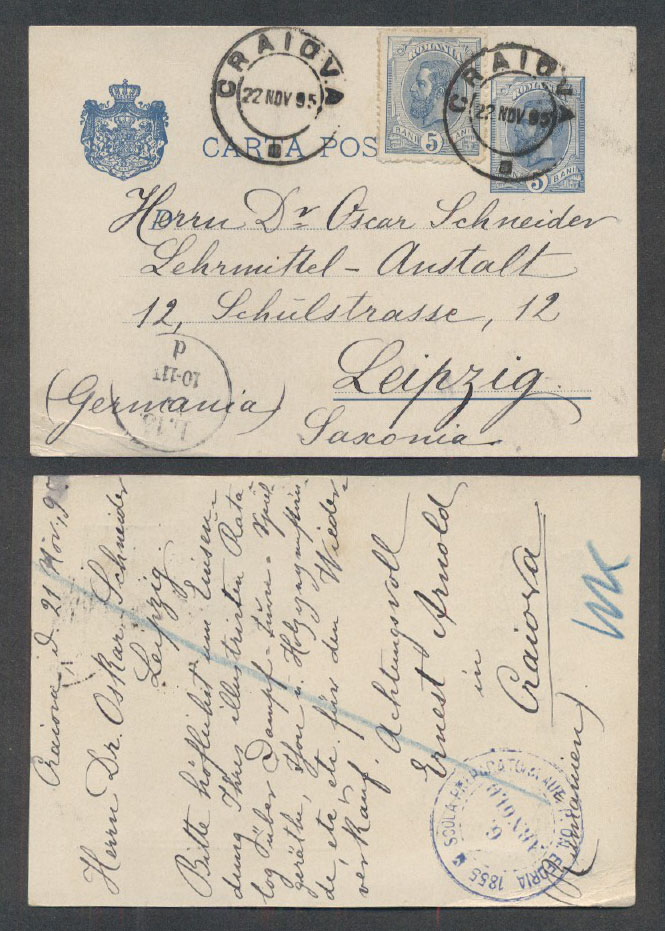 CRAIOVA
22 NOV 95
ROMANIA
BANI 5 BANI
CRAIOVA
22 NOV 95
5 BANI
CARTA POS
D
Herrn Dr Oscar Schneider
Lehrmittel - Anstalt
12, Schulstrasse, 12
Leipzig.
(Germania)
Saxonia
10-11
d
Craiova d. 21 Nov. 95
Herrn Dr. Oskar Schneider
Leipzig
Bitte höflichst um Einsen-
dung Ihres illustrirten Kata
log über Dampf-Turn-Spiel
geräthe,
de, etc etc. für den Wieder-
verkauf. Achtungsvoll
Ernest Arnold
in
Craiova
(Rumänien)
1855